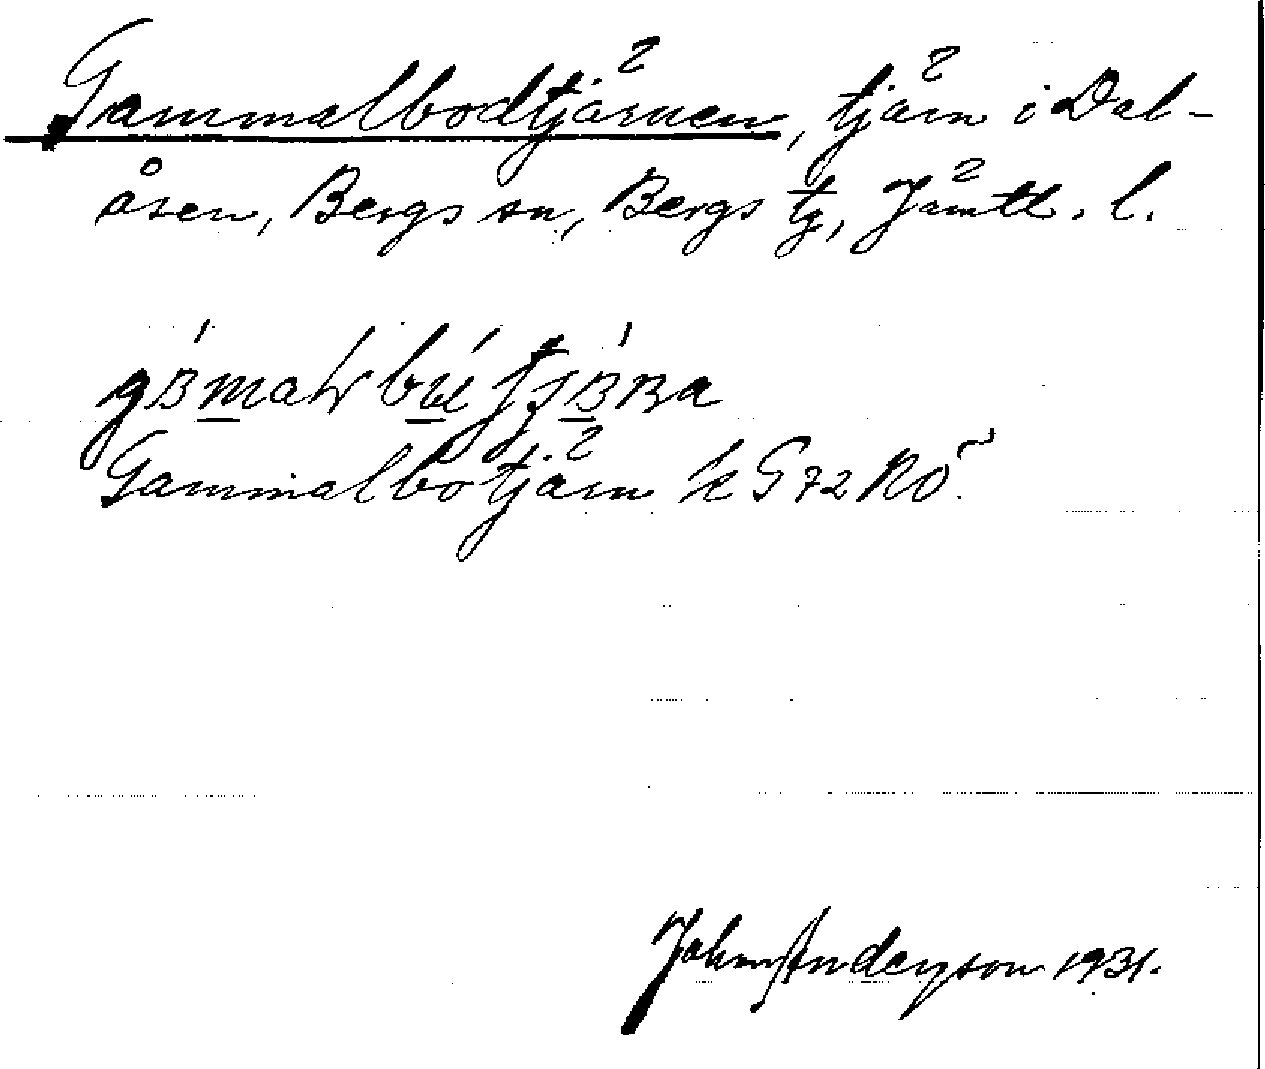 Gammalbodtjärnen, tjärn i Dal-
åsen, Bergs sn, Bergs tg, Jämtl. l.
Gammalbotjärn k G 72 NÖ.
John Anderson 1931.